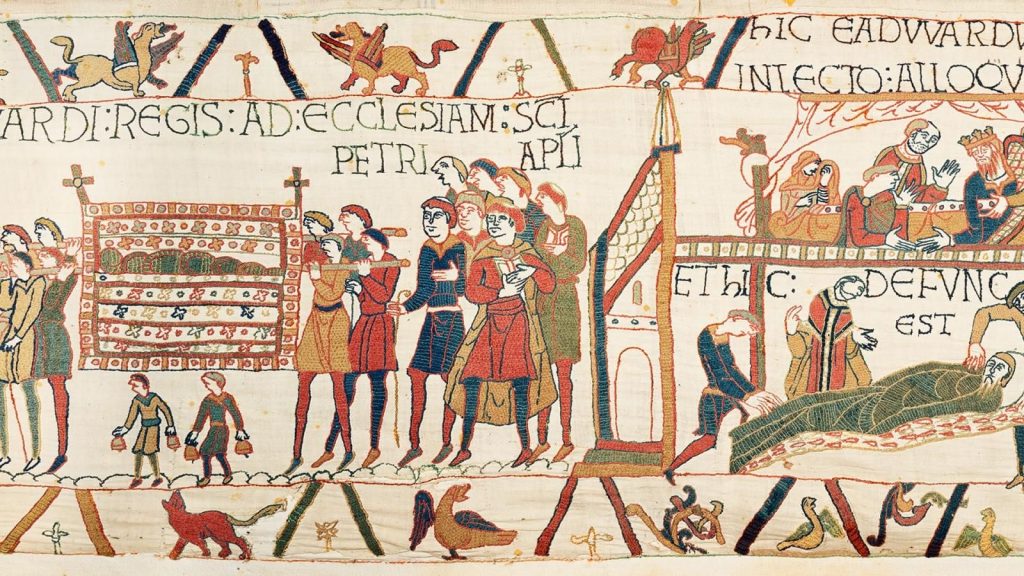 ARDI:REGIS:AD:ECCLESIAM:SCI
PETRI APLI
hIC EADVVARDV
INLECTO:ALLOQV
ET hIC: DEFVNC
EST